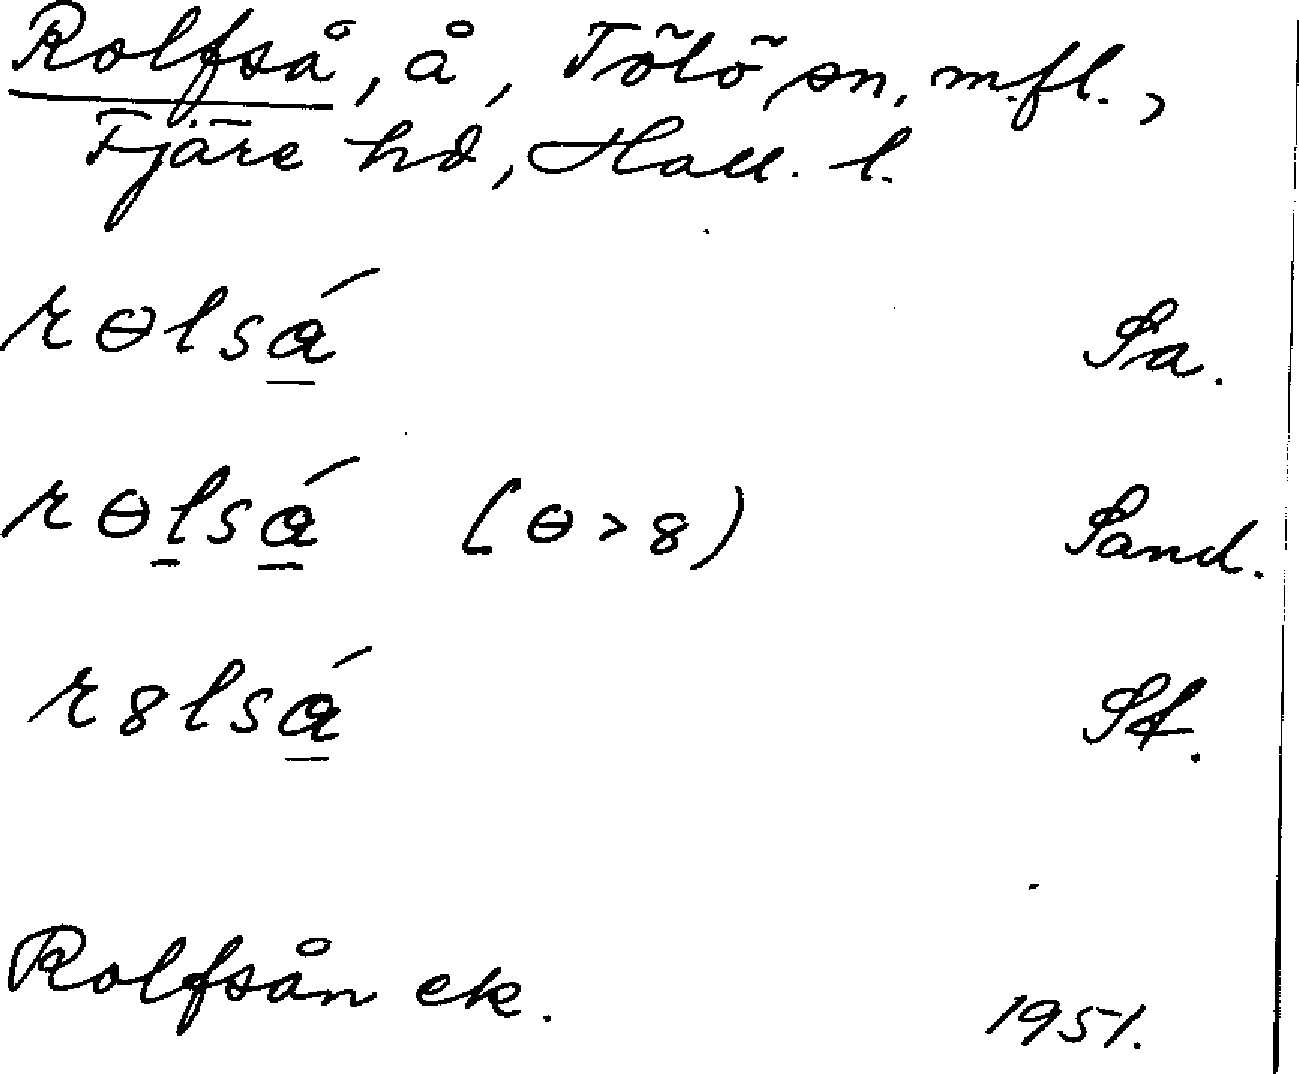 Rolfså, å, Tölö sn. m.fl.,
Fjäre hd, Hall. l.
rɵlsá̱ Sa.
rɵḻsá̱ (ɵ > 8) Sand.
r8lsá̱ Sf.
Rolfsån ek. 1951.